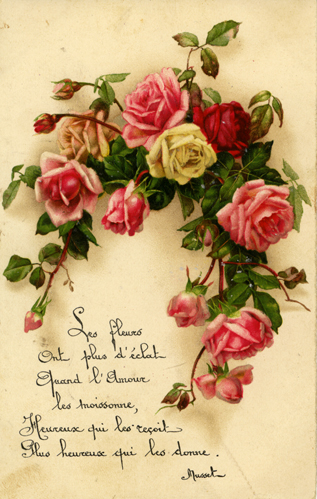 Les fleurs
Ont plus d'éclat
Quand l'Amour
les moissonne,
Heureux qui les reçoit
Plus heureux qui les donne.
Musset